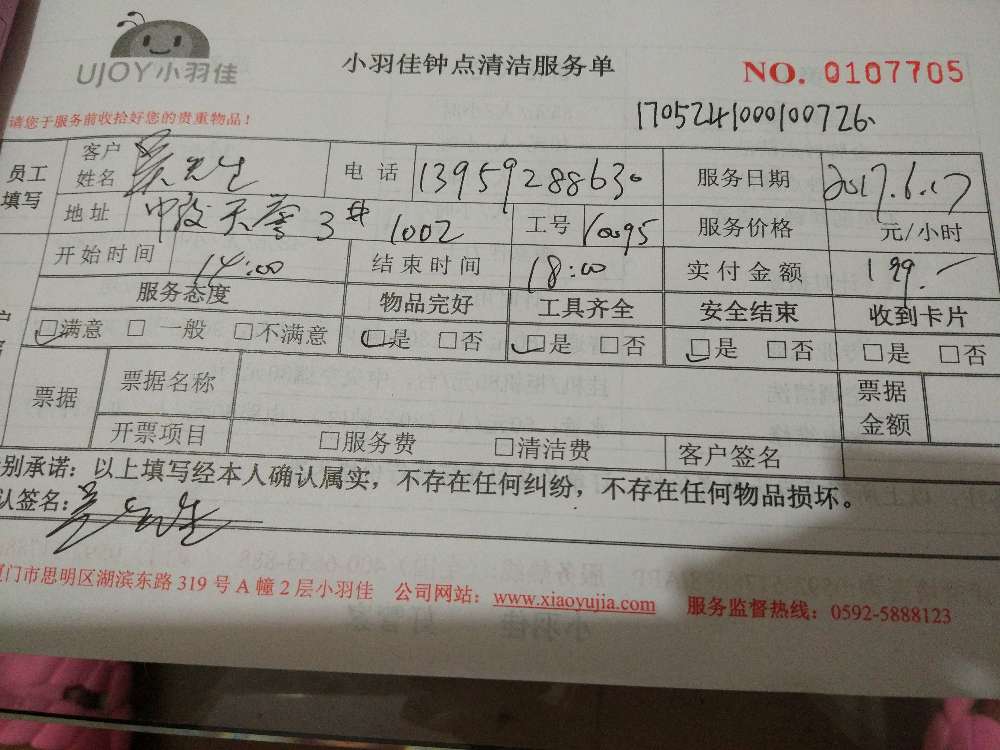 UJOY小羽佳
小羽佳钟点清洁服务单
NO. 0107705
170524100010726.
请您于服务前收拾好您的贵重物品！
员工填写 客户姓名 吴先生 电话 13959288630 服务日期 2017.6.17
地址 中投天誉3# 1002 工号 10095 服务价格 元/小时
开始时间 14:00 结束时间 18:00 实付金额 199.—
服务态度 物品完好 工具齐全 安全结束 收到卡片
□满意 □一般 □不满意 □是 □否 □是 □否 □是 □否 □是 □否
票据 票据名称 票据金额
开票项目 □服务费 □清洁费 客户签名
别承诺：以上填写经本人确认属实，不存在任何纠纷，不存在任何物品损坏。
认签名：吴先生
厦门市思明区湖滨东路319号A幢2层小羽佳 公司网站：www.xiaoyujia.com 服务监督热线：0592-5888123